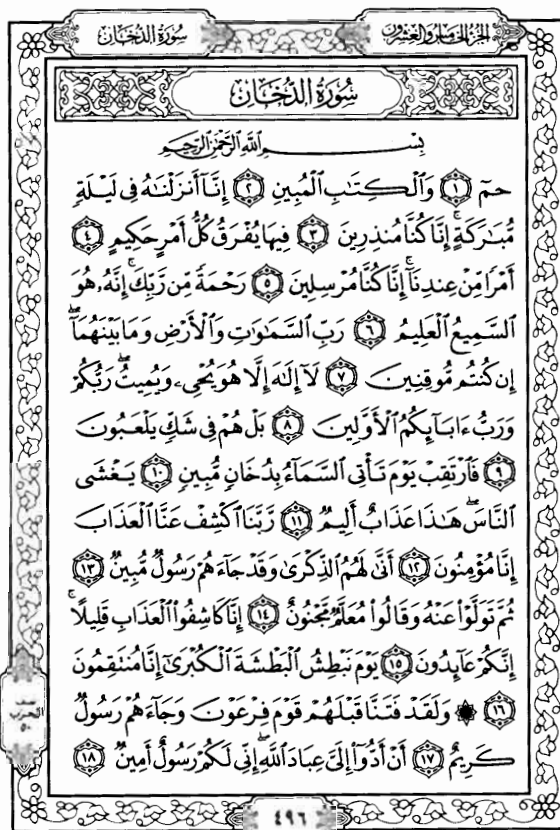 الجزء الخامس والعشرون
سُورَةُ الدُّخَان
سُورَةُ الدُّخَانِ
بِسْمِ اللَّهِ الرَّحْمَٰنِ الرَّحِيمِ
حمٓ ١ وَالْكِتَابِ الْمُبِينِ ٢ إِنَّا أَنزَلْنَٰهُ فِى لَيْلَةٍ
مُّبَٰرَكَةٍ ۚ إِنَّا كُنَّا مُنذِرِينَ ٣ فِيهَا يُفْرَقُ كُلُّ أَمْرٍ حَكِيمٍ ٤
أَمْرًا مِّنْ عِندِنَآ ۚ إِنَّا كُنَّا مُرْسِلِينَ ٥ رَحْمَةً مِّن رَّبِّكَ ۚ إِنَّهُۥ هُوَ
السَّمِيعُ الْعَلِيمُ ٦ رَبِّ السَّمَٰوَٰتِ وَالْأَرْضِ وَمَا بَيْنَهُمَآ ۖ
إِن كُنتُم مُّوقِنِينَ ٧ لَآ إِلَٰهَ إِلَّا هُوَ يُحْىِۦ وَيُمِيتُ ۖ رَبُّكُمْ
وَرَبُّ ءَابَآئِكُمُ الْأَوَّلِينَ ٨ بَلْ هُمْ فِى شَكٍّ يَلْعَبُونَ
٩ فَارْتَقِبْ يَوْمَ تَأْتِى السَّمَآءُ بِدُخَانٍ مُّبِينٍ ١٠ يَغْشَى
النَّاسَ ۖ هَٰذَا عَذَابٌ أَلِيمٌ ١١ رَّبَّنَا اكْشِفْ عَنَّا الْعَذَابَ
إِنَّا مُؤْمِنُونَ ١٢ أَنَّىٰ لَهُمُ الذِّكْرَىٰ وَقَدْ جَآءَهُمْ رَسُولٌ مُّبِينٌ ١٣
ثُمَّ تَوَلَّوْا۟ عَنْهُ وَقَالُوا۟ مُعَلَّمٌ مَّجْنُونٌ ١٤ إِنَّا كَاشِفُوا۟ الْعَذَابِ قَلِيلًا ۚ
إِنَّكُمْ عَآئِدُونَ ١٥ يَوْمَ نَبْطِشُ الْبَطْشَةَ الْكُبْرَىٰٓ إِنَّا مُنتَقِمُونَ
١٦ ۞ وَلَقَدْ فَتَنَّا قَبْلَهُمْ قَوْمَ فِرْعَوْنَ وَجَآءَهُمْ رَسُولٌ
كَرِيمٌ ١٧ أَنْ أَدُّوٓا۟ إِلَىَّ عِبَادَ اللَّهِ ۖ إِنِّى لَكُمْ رَسُولٌ أَمِينٌ ١٨
نصف
الحزب
٥٠
٤٩٦